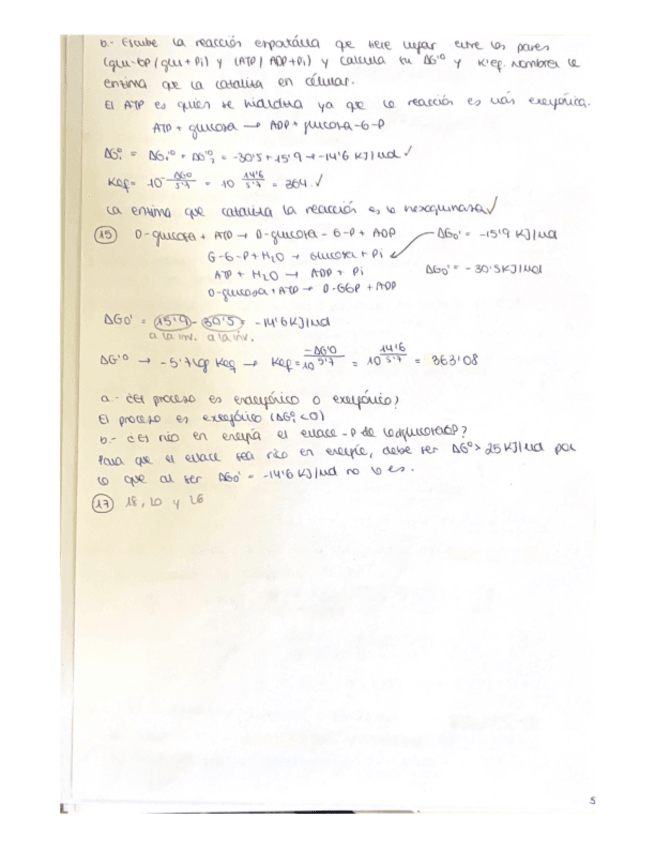 b.- Escribe la reacción espontánea que tiene lugar entre los pares
(glu-6P/glu + Pi) y (ATP/ADP+Pi) y calcula su ΔG'º y K'eq. Nombra la
enzima que la cataliza en células.
El ATP es quien se hidroliza ya que la reacción es más exergónica.
ATP + glucosa → ADP + glucosa-6-P
ΔG'º = ΔG₁'º + ΔG'º₂ = -30'5 + 15'9 → -14'6 KJ/mol ✓
Keq = 10^-ΔGº/5'7 = 10^14'6/5'7 = 364 ✓
La enzima que cataliza la reacción es la hexoquinasa ✓
15 D-glucosa + ATP → D-glucosa - 6-P + ADP
ΔG₀' = -15'9 KJ/mol
G-6-P + H₂O → Glucosa + Pi
ATP + H₂O → ADP + Pi ΔG₀' = -30'5 KJ/mol
D-glucosa + ATP → D-G6P + ADP
ΔG₀' = 15'9 - 30'5 = -14'6 KJ/mol
a la inv. a la inv.
ΔG'º → -5'7 lg Keq → Keq = 10^-ΔG'º/5'7 = 10^14'6/5'7 = 363'08
a.- ¿El proceso es endergónico o exergónico?
El proceso es exergónico (ΔGº < 0)
b.- ¿Es rico en energía el enlace -P de la glucosa6P?
Para que el enlace sea rico en energía, debe ser ΔGº > 25 KJ/mol por
lo que al ser ΔG₀' = -14'6 KJ/mol no lo es.
17 18, 20 y 26
5